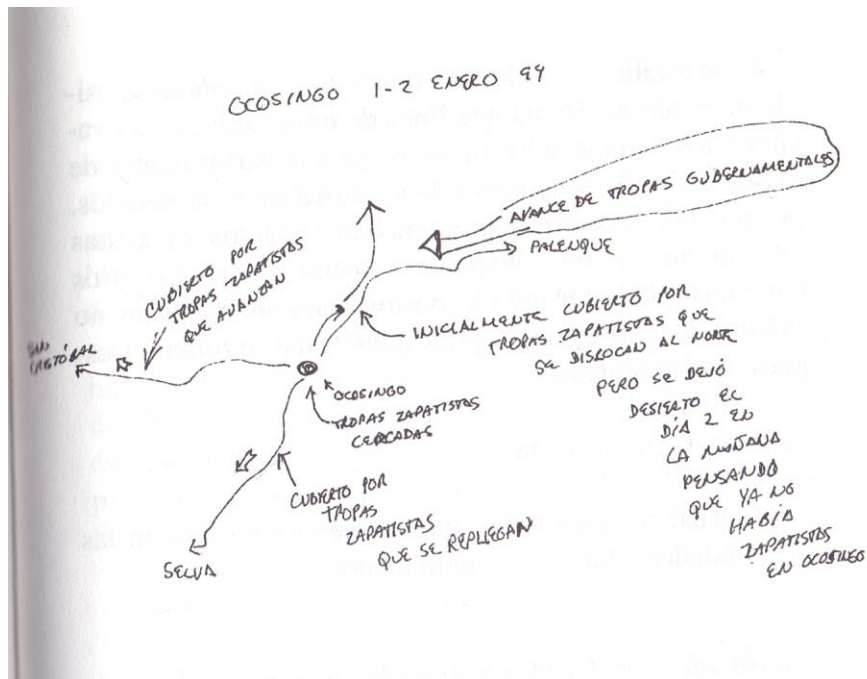 OCOSINGO 1-2 ENERO 94
AVANCE DE TROPAS GUBERNAMENTALES
PALENQUE
CUBIERTO POR
TROPAS ZAPATISTAS
QUE AVANZAN
SAN
CRISTÓBAL
INICIALMENTE CUBIERTO POR
TROPAS ZAPATISTAS QUE
SE DISLOCAN AL NORTE
PERO SE DEJÓ
DESIERTO EL
DÍA 2 EN
LA MAÑANA
PENSANDO
QUE YA NO
HABÍA
ZAPATISTAS
EN OCOSINGO
OCOSINGO
TROPAS ZAPATISTAS
CERCADAS
CUBIERTO POR
TROPAS
ZAPATISTAS
QUE SE REPLIEGAN
SELVA